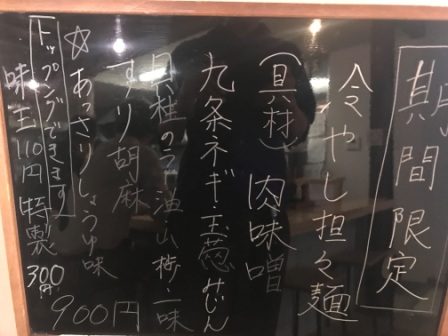 期間限定
冷やし担々麺
(具材)肉味噌
九条ネギ・玉葱みじん
貝柱のラー油山椒一味
すり胡麻
☆あっさりしょうゆ味
900円
トッピングできます
味玉110円特製300円